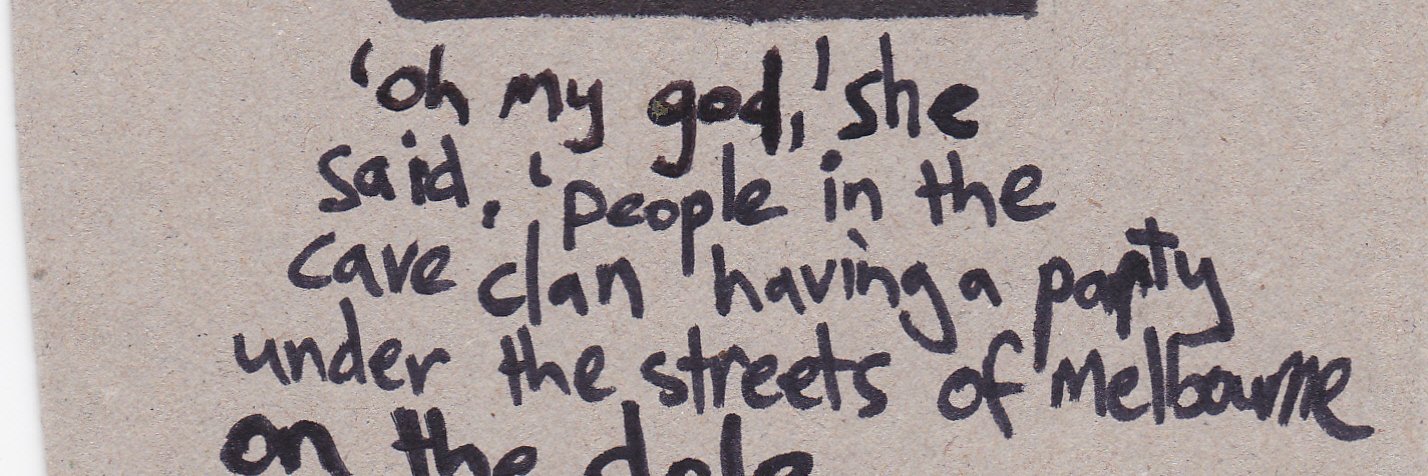 'oh my god,' she
said, 'people in the
cave clan having a party
under the streets of Melbourne
on the dole